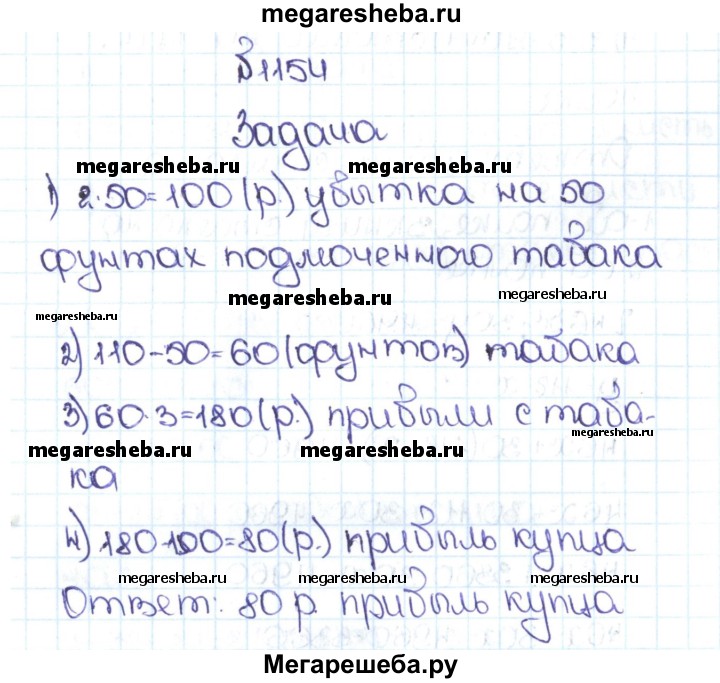 megaresheba.ru
№1154
Задача
megaresheba.ru megaresheba.ru
1) 2·50=100(р.) убытка на 50
фунтах подмоченного табака
megaresheba.ru megaresheba.ru
megaresheba.ru
2) 110-50=60(фунтов) табака
3) 60·3=180(р.) прибыли с таба-
megaresheba.ru
megaresheba.ru megaresheba.ru
ка
4) 180-100=80(р.) прибыль купца
megaresheba.ru megaresheba.ru megaresheba.ru
Ответ: 80 р. прибыль купца
Мегарешеба.ру